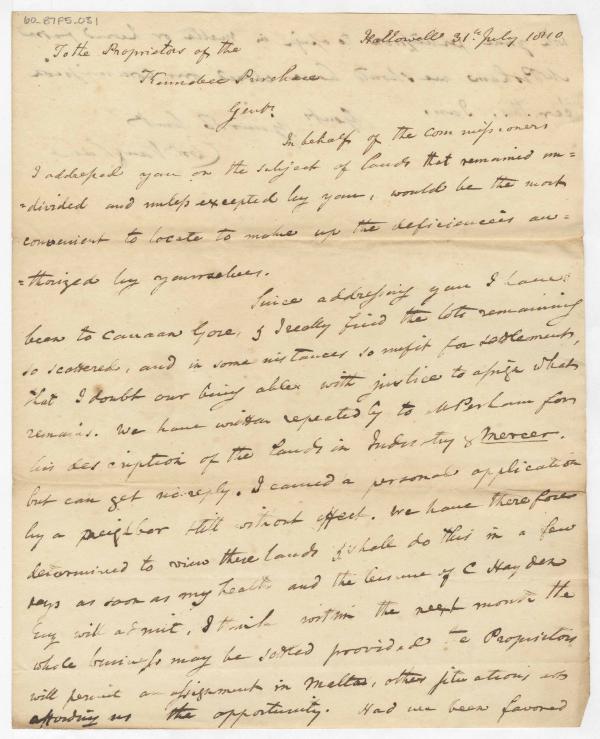 60.8795.031
Hallowell 31st July 1810
To the Proprietors of the
Kennebec Purchase
Gent.
In behalf of the commissioners
I addressed you on the subject of lands that remained un=
=divided and unless excepted by you, would be the most
convenient to locate to make up the deficiencies au=
=thorized by yourselves.
Since addressing you I have
been to Canaan Gore, & I really find the lots remaining
so scattered, and in some instances so unfit for settlement,
that I doubt our being able with justice to assign what
remains. We have written repeatedly to Mr Perham for
his description of the lands in Industry & Mercer.
but can get no reply. I caused a personal application
by a neighbor still without effect. We have therefore
determined to view these lands & shall do this in a few
days as soon as my health and the leisure of C Hayden
Esq will admit. I think within the next month the
whole business may be settled provided the Proprietors
will permit an assignment in Malta, other situations not
affording us the opportunity. Had we been favored